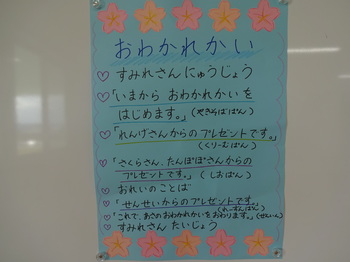 おわかれかい
♡ すみれさんにゅうじょう
♡「いまから おわかれかいを
はじめます。」(やきそばぱん)
♡「れんげさんからのプレゼントです。」
(くりーむぱん)
♡「さくらさん、たんぽぽさんからの
プレゼントです。」(しおぱん)
♡ おれいのことば
♡「せんせいからのプレゼントです。」
(れーずんぱん)
♡「これで、あさのおわかれかいをおわります。」(ぜんいん)
♡ すみれさん たいじょう